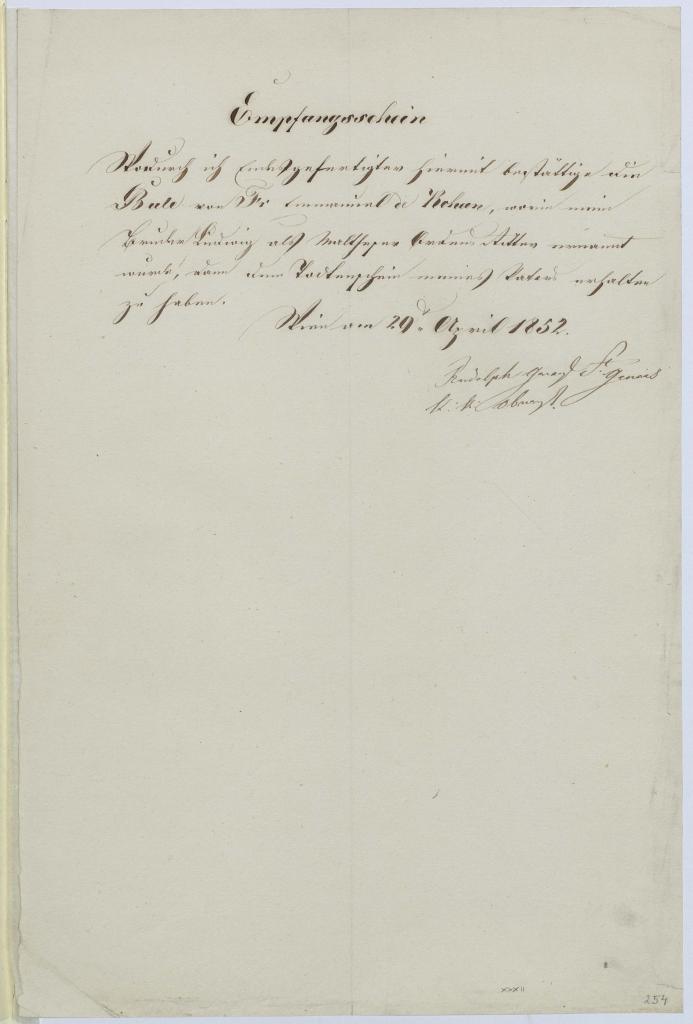 Empfangsschein
Wodurch ich Endesgefertigter hiermit bestättige die
Bule von Fr Emmanuel de Rohan, worin mein
Bruder Ludwig als Maltheser Ordens Ritter ernannt
wurde, dann den Todtenschein meines Vaters erhalten
zu haben.
Wien am 29t April 1852.
Rudolph Graf St Genois
K: K: Oberst.
XXXII
254